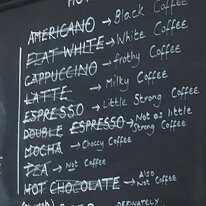 AMERICANO → Black Coffee
FLAT WHITE → White Coffee
CAPPUCCINO → frothy Coffee
LATTE → Milky Coffee
ESPRESSO → Little Strong Coffee
DOUBLE ESPRESSO → Not as little Strong Coffee
MOCHA → Choccy Coffee
TEA → Not Coffee
HOT CHOCOLATE → Also Not Coffee